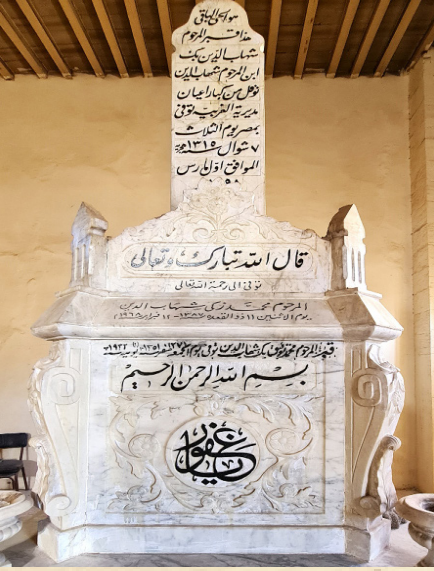 هو الحي الباقي
هذا قبر المرحوم
شهاب الدين بك
ابن المرحوم شهاب الدين
نوفل من كبار اعيان
مديرية الغربية توفى
بمصر يوم الثلاث
٧ شوال سنة ١٣١٥ هجرية
الموافق اول مارس
قال الله تبارك وتعالى
توفى الى رحمة الله تعالى
المرحوم محمد زكى شهاب الدين
يوم الاثنين ١١ ذو القعدة ١٣٨٧ - ١٢
المرحوم محمد توفيق بك شهاب الدين توفى يوم الجمعة
بسم الله الرحمن الرحيم
غفور